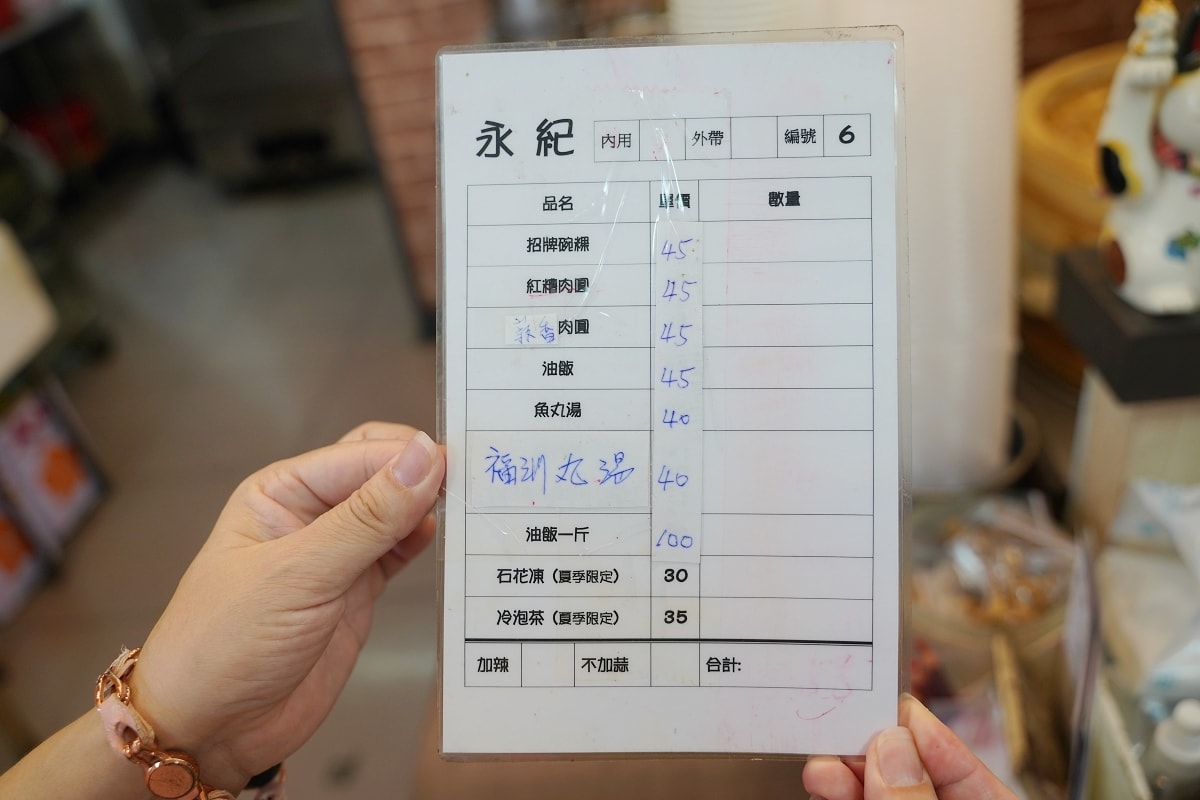 永紀 內用 外帶 編號 6
品名 單價 數量
招牌碗粿 45
紅糟肉圓 45
蒜香肉圓 45
油飯 45
魚丸湯 40
福州丸湯 40
油飯一斤 100
石花凍（夏季限定） 30
冷泡茶（夏季限定） 35
加辣 不加蒜 合計: